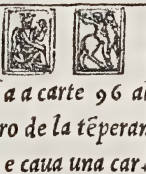 a a carte 96 al
ro de la tẽperan
e caua una car